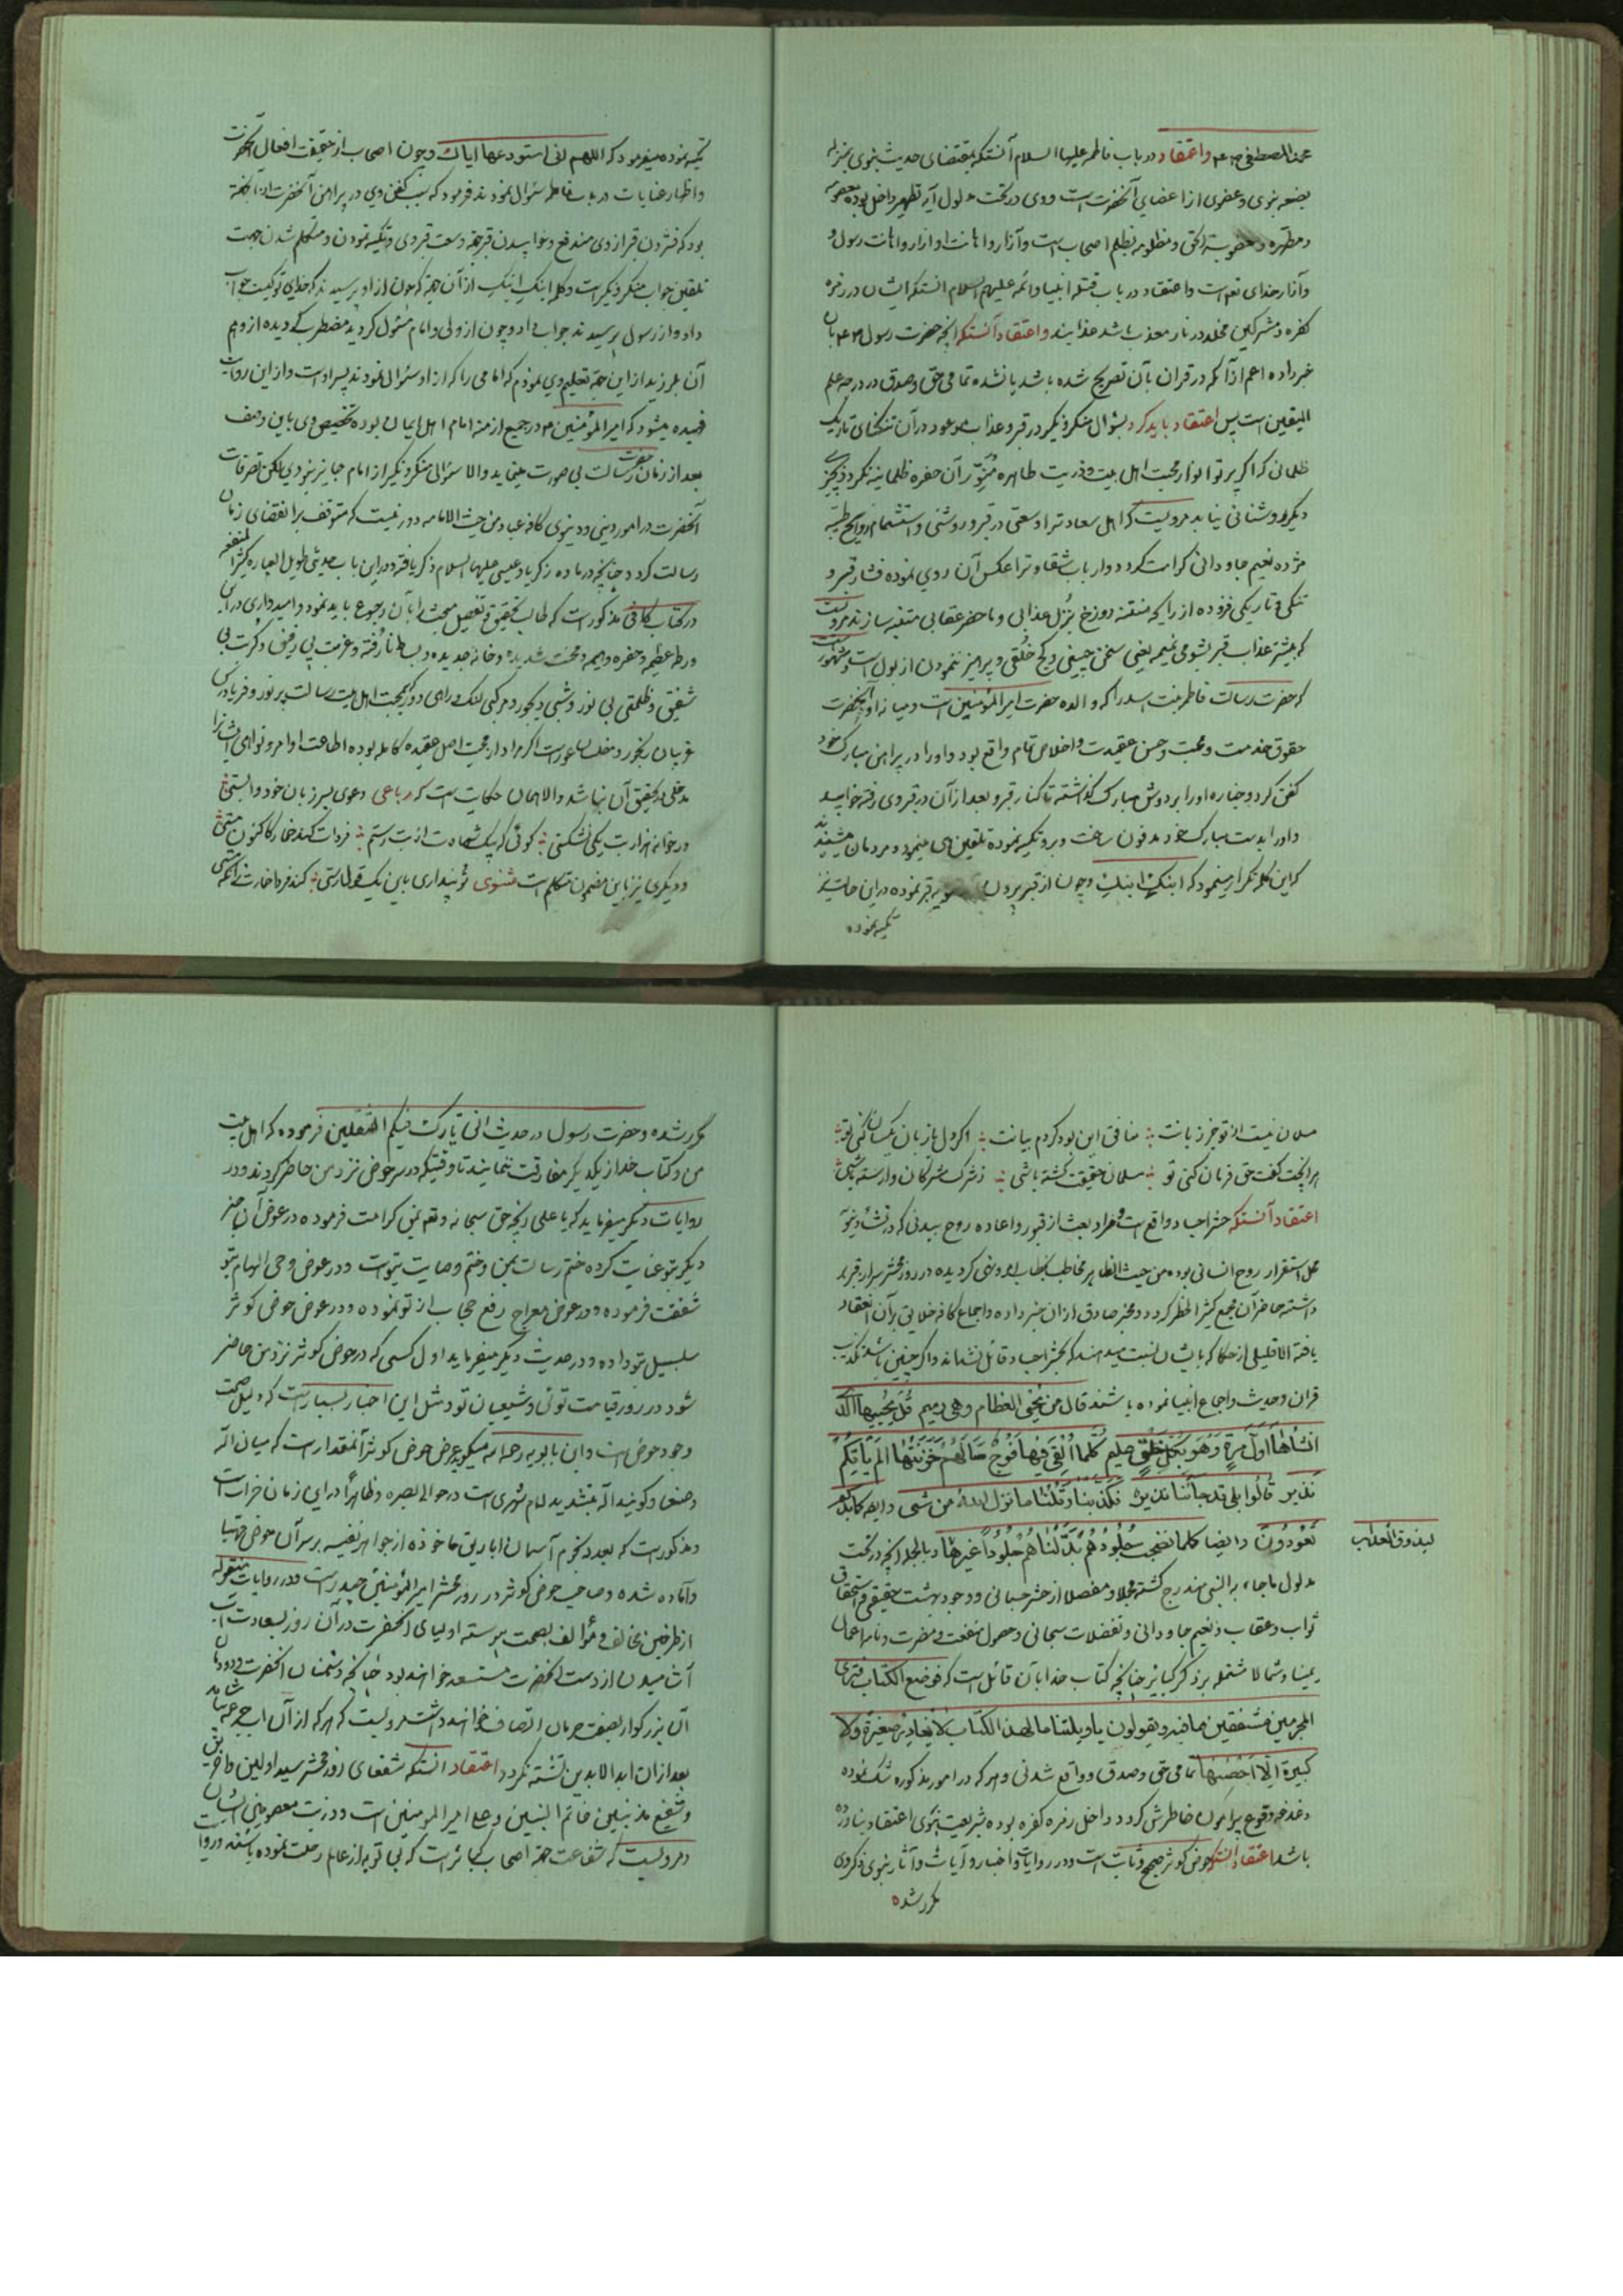 محمد المصطفی صلعم واعتقاد در باب فاطمه علیها السلام آنستکه بمقتضای حدیث نبوی بمنزله
بضعه نبوی وعضوی از اعضای آنحضرت است ووی در تحت مدلول آیه تطهیر داخل بوده معصومه
ومطهره ومغصوبة الحق ومظلومه بظلم اصحاب است وآزار واهانت او ازار واهانت رسول و
وآزار خدای تعم است واعتقاد در باب قتله انبیا وائمه علیهم السلام انستکه ایشان در زمره
کفره ومشرکین مخلد در نار معذب باشد عذابند واعتقاد آنستکه انچه حضرت رسول صلعم بان
خبر داده اعم از آنکه در قران بآن تصریح شده باشد یا نشده تمامی حق وصدق ودر درجه علم
الیقین است پس اعتقاد باید کرد بسوال منکر ونکیر در قبر وعذاب موعود در آن تنکنای تاریک
ظلمانی که اکر پرتو انوار محبت اهل بیت وذریت طاهره منور آن حفره ظلمانیه نکردد بچیزی
دیکر روشنائی نیابد مرویست که اهل سعادترا وسعتی در قبر وروشنی واستشمام روایح طیبه
مژده نعیم جاودانی کرامت کردد وارباب شقاوترا عکس آن روی نموده فشار قبر و
تنکی وتاریکی فزوده از رایحه منتنه دوزخ بنزل عذابی وما حضر عقابی متنبه سازند مرویست
که بیشتر عذاب قبر بشومی نمیمه یعنی سخن چینی وکج خلقی وپرهیز ننمودن از بول است ومشهور است
که حضرت رسالت فاطمه بنت اسد را که والده حضرت امیر المؤمنین است ومیانه او وآنحضرت
حقوق خدمت ومحبت وحسن عقیدت واخلاص تمام واقع بود واو را در پیراهن مبارک خود
کفن کرد وجنازه او را بر دوش مبارک کذاشته تا کنار قبر وبعد از آن در قبر وی رفته خوابید
واو را بدست مبارک خود مدفون ساخت وبرو تکیه نموده تلقین وی مینمود ومردمان میشنیدند
که این کلمه تکرار مینمود که ابنک ابنک وچون از قبر بیرون روبه قبر نموده در این حالت نیز
تکیه نموده
تکیه نموده میفرمود که اللهم انی استودعها ایاک وچون اصحاب از حقیقت افعال آنحضرت
واظهار عنایات در باب فاطمه سئوال نمودند فرمود که سبب کفن وی در پیراهن آنحضرت
بود که فشردن قبر از وی مندفع وخوابیدن قبر جهة وسعت قبر وی وتکیه نمودن ومتکلم شدن جهت
تلقین جواب منکر ونکیر است وکلمه ابنک ابنک از آن جهة که چون از او پرسیدند که خدای تو کیست جواب
داد واز رسول پرسیدند جواب داد وچون از ولی وامام مسئول کردید مضطرب کردیده از وهم
آن بلرزید از این جهة تعلیم وی نمودم که امامی را که از او سئوال نمودند پسر او است واز این روایت
فهمیده میشود که امیر المؤمنین ع در جمیع ازمنه امام اهل ایمان بوده تخصیص وی باین وصف
بعد از زمان حضرت رسالت بی صورت مینماید والا سئوال منکر ونکیر از امام جایز نبودی لکن تصرفات
آنحضرت در امور دینی ودنیوی کافه عباد من حیث الامامه دور نیست که متوقف بر انقضای زمان
رسالت کردد چنانچه در ماده زکریا وعیسی علیهما السلام ذکر یافته ودر این باب حدیثی طویل العباره کثیر المنفعه
در کتاب کافی مذکور است که طالب تحقیق وتفصیل مبحث را بآن رجوع باید نمود وامیدواری در این
ورطه عظیمه وحفره واهمه ومحنت شدیده وخانه جدیده وبساط نارفته وغربت بی رفیق وکربت بی
شفیق وظلمتی بی نور وشبی دیجور ومرکبی لنک وراهی دور بمحبت اهل بیت رسالت پر نور وفریادرس
غریبان رنجور ومفلسان عور است اکر مراد از محبت اصل عقیده کامله بوده اطاعت اوامر ونواهی ایشانرا
مدخلی در تحقیق آن نباشد والا همان حکایت است که رباعی دعوی بسر زبان خود وابستی
در خانه هزار بت یکی نشکستی کوئی که بیک شهادت از بت رستم فردات کند خمار کاکنون مستی
ودیکری نیز باین مضمون متکلم است مثنوی تو پنداری باین یک قول رستی کند فردا خمارت زانکه مستی
مسلمان نیست از تو جز زبانت منافق این بود کردم بیانت اکر دل با زبان یکسان کنی تو
هر انچت کفت حق فرمان کنی تو مسلمان حقیقت کشته باشی ز شرک مشرکان وارسته باشی
اعتقاد آنستکه حشر اجساد واقع است ومراد بعث از قبور واعاده روح ببدنی که در نشاء دنیوی
محل استقرار روح انسانی بوده من حیث الظاهر مخاطب بخطاب امر ونهی کردیده در روز محشر سر از قبر بر
داشته حاضر آن مجمع کثیر الخطر کردد ومخبر صادق از ان خبر داده واجماع کافه خلایق بر آن انعقاد
یافته الا قلیلی از حکما که بایشان نسبت میدهند که بحشر اجساد قائل نشداند واکر چنین باشد تکذیب
قران وحدیث واجماع انبیا نموده باشند قال من یحیی العظام وهی رمیم قل یحییها الذی
انشأها اول مرة وهو بکل خلق علیم کلما القی فیها فوج سألهم خزنتها الم یأتکم
نذیر قالوا بلی قد جآئنا نذیر فکذبنا وقلنا ما نزل الله من شئ وایضا کما بدأکم
تعودون وایضا کلما نضجت جلودهم بدلناهم جلودا غیرها وبالجمله انچه در تحت
لیذوقوا العذاب
مدلول ما جاء به النبی مندرج کشته مجملا ومفصلا از حشر جسمانی ووجود بهشت حقیقی واستحقاق
ثواب وعقاب ونعیم جاودانی وتفضلات سبحانی وحصول منفعت ومضرت ونامه اعمال
یمینا وشمالا مشتمله بر ذکر کبایر چنانچه کتاب خدا بآن قائل است که فوضع الکتاب فتری
المجرمین مشفقین مما فیه ویقولون یا ویلتنا ما لهذا الکتاب لا یغادر صغیرة ولا
کبیرة الا احصیها تمامی حق وصدق وواقع شدنی وهر که در امور مذکوره شک نموده
دغدغه وقوع پیرامون خاطرش کردد داخل زمره کفره بوده بشریعت نبوی اعتقاد نیاورده
باشد اعتقاد انستکه حوض کوثر صحیح وثابت است ودر روایات واخبار وآیات وآثار نبوی ذکر وی
مکرر شده
مکرر شده وحضرت رسول در حدیث انی تارک فیکم الثقلین فرموده که اهل بیت
من وکتاب خدا از یکدیکر مفارقت ننمایند تا وقتیکه در سر حوض نزد من حاضر کردند ودر
روایات دیکر میفرماید که یا علی انچه حق سبحانه وتعم بمن کرامت فرموده در عوض آن چیز
دیکر بتو عنایت کرده ختم رسالت بمن وختم وصایت بتو است ودر عوض وحی الهام بتو
شفقت فرموده ودر عوض معراج رفع حجاب از تو نموده ودر عوض حوض کوثر
سلسبیل بتو داده ودر حدیث دیکر میفرماید اول کسی که در حوض کوثر نزد من حاضر
شود در روز قیامت توئی وشیعیان تو ومثل این اخبار بسیار است که دلیل صحت
وجود حوض است وابن بابویه رحمه الله میکوید عرض حوض کوثر آنمقدار است که میان ابله
وصنعا وکویند ابله بتشدید لام شهری است در حوالی بصره وظاهرا در این زمان خراب است
ومذکور است که بعدد نجوم آسمان اباریق ماخوذه از جواهر نفیسه بر سر آن حوض مهیا
وآماده شده وصاحب حوض کوثر در روز محشر امیر المؤمنین حیدر است ودر روایات منقوله
از طرفین مخالف ومؤالف بصحت پیوسته اولیای انحضرت در آن روز بسعادت آب
آشامیدن از دست آنحضرت مستسعد خواهند بود چنانچه دشمنان انحضرت ودودمان
آن بزرکوار بصفت حرمان اتصاف خواهند داشت مرویست که هر که از آن آب جرعه بیاشامد
بعد از ان ابد الابدین تشنه نکردد اعتقاد انستکه شفعای روز محشر سید اولین واخرین
وشفیع مذنبین خاتم النبیین وعلی امیر المومنین است وذریت معصومین ایشان
ومرویست که شفاعت جهة اصحاب کبائر است که بی توبه از عالم رحلت نموده باشند ودر روایت